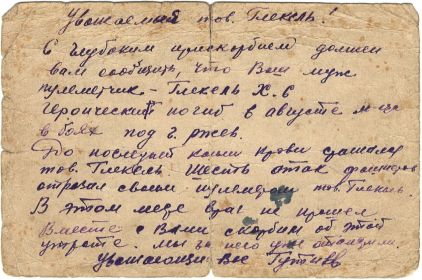 Уважаемый тов. Глекель!
С глубоким прискорбием должен
вам сообщить, что Ваш муж
пулеметчик - Глекель Х. С
героически погиб в августе м-це
в боях под г. Ржев.
До последней капли крови сражался
тов. Глекель. Шесть атак фашистов
отразил своим пулеметом тов. Глекель.
В этом месте враг не прошел
Вместе с Вами скорбим об этой
утрате. мы за него уже отомстили.
Уважающий Вас